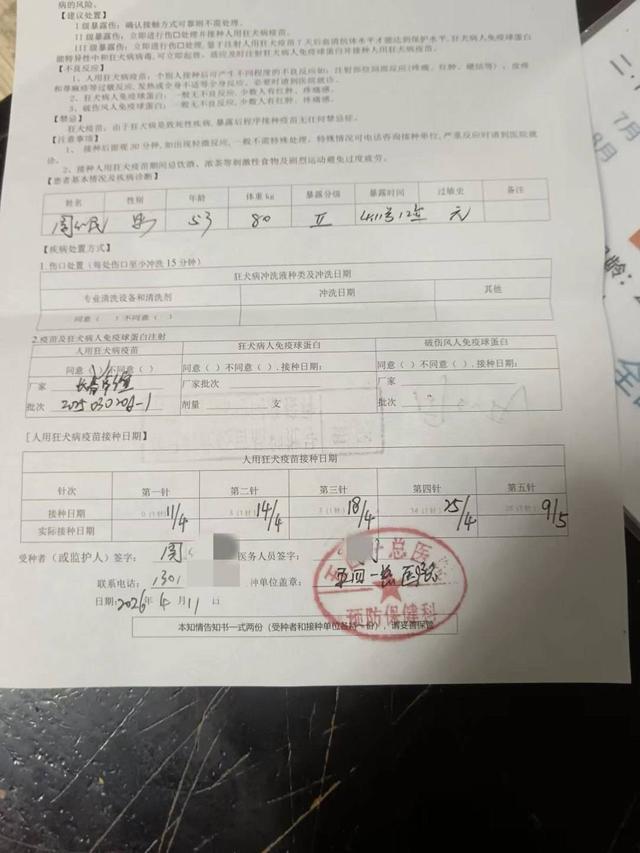 病的风险。
【建议处置】
I级暴露伤：确认接触方式可靠则不需处理。
II级暴露伤：立即进行伤口处理并接种人用狂犬病疫苗。
III级暴露伤：立即进行伤口处理,鉴于注射人用狂犬疫苗7天后血清抗体水平才能达到保护水平,狂犬病人免疫球蛋白
能特异性中和狂犬病病毒,可立即起效,适应及时注射狂犬病人免疫球蛋白并接种人用狂犬病疫苗。
【不良反应】
1、人用狂犬病疫苗：个别人接种后可产生不同程度的不良反应如：注射部位局部反应(疼痛、红肿、硬结等)、皮疹
和荨麻疹等过敏反应、发热或全身不适等全身反应，必要时请到医院就诊。
2、狂犬病人免疫球蛋白：一般无不良反应,少数人有红肿、疼痛感。
3、破伤风人免疫球蛋白：一般无不良反应,少数人有红肿、疼痛感。
【禁忌】
狂犬疫苗：由于狂犬病是致死性疾病,暴露后程序接种疫苗无任何禁忌症。
【注意事项】
1、接种后留观30分钟,如出现轻微反应,一般不需特殊处理。特殊情况可电话咨询接种单位,严重反应时请到医院就
诊。
2、接种人用狂犬疫苗期间忌饮酒、浓茶等刺激性食物及剧烈运动避免过度疲劳。
【患者基本情况及疾病诊断】
姓名 性别 年龄 体重kg 暴露分级 暴露时间 过敏史 备注
男 53 80 II 无
【疾病处置方式】
1.伤口处置（每处伤口至少冲洗15分钟）
狂犬病冲洗液种类及冲洗日期
专业清洗设备和清洗剂 冲洗日期 其他
同意（ ）不同意（ ）
2.疫苗及狂犬病人免疫球蛋白注射
人用狂犬病疫苗 狂犬病人免疫球蛋白 破伤风人免疫球蛋白
同意（ ）不同意（ ） 同意（ ）不同意（ ）.接种日期： 同意（ ）不同意（ ）.接种日期：
厂家 厂家批次 厂家
批次 剂量 支 批次
[人用狂犬病疫苗接种日期】
人用狂犬疫苗接种日期
针次 第一针 第二针 第三针 第四针 第五针
接种日期 11/4 14/4 18/4 25/4 9/5
实际接种日期
受种者（或监护人）签字：周 医务人员签字：
联系电话： 冲单位盖章：
日期:2026年4月11日
预防保健科
本知情告知书一式两份（受种者和接种单位各持一份），请妥善保管
7月
8月